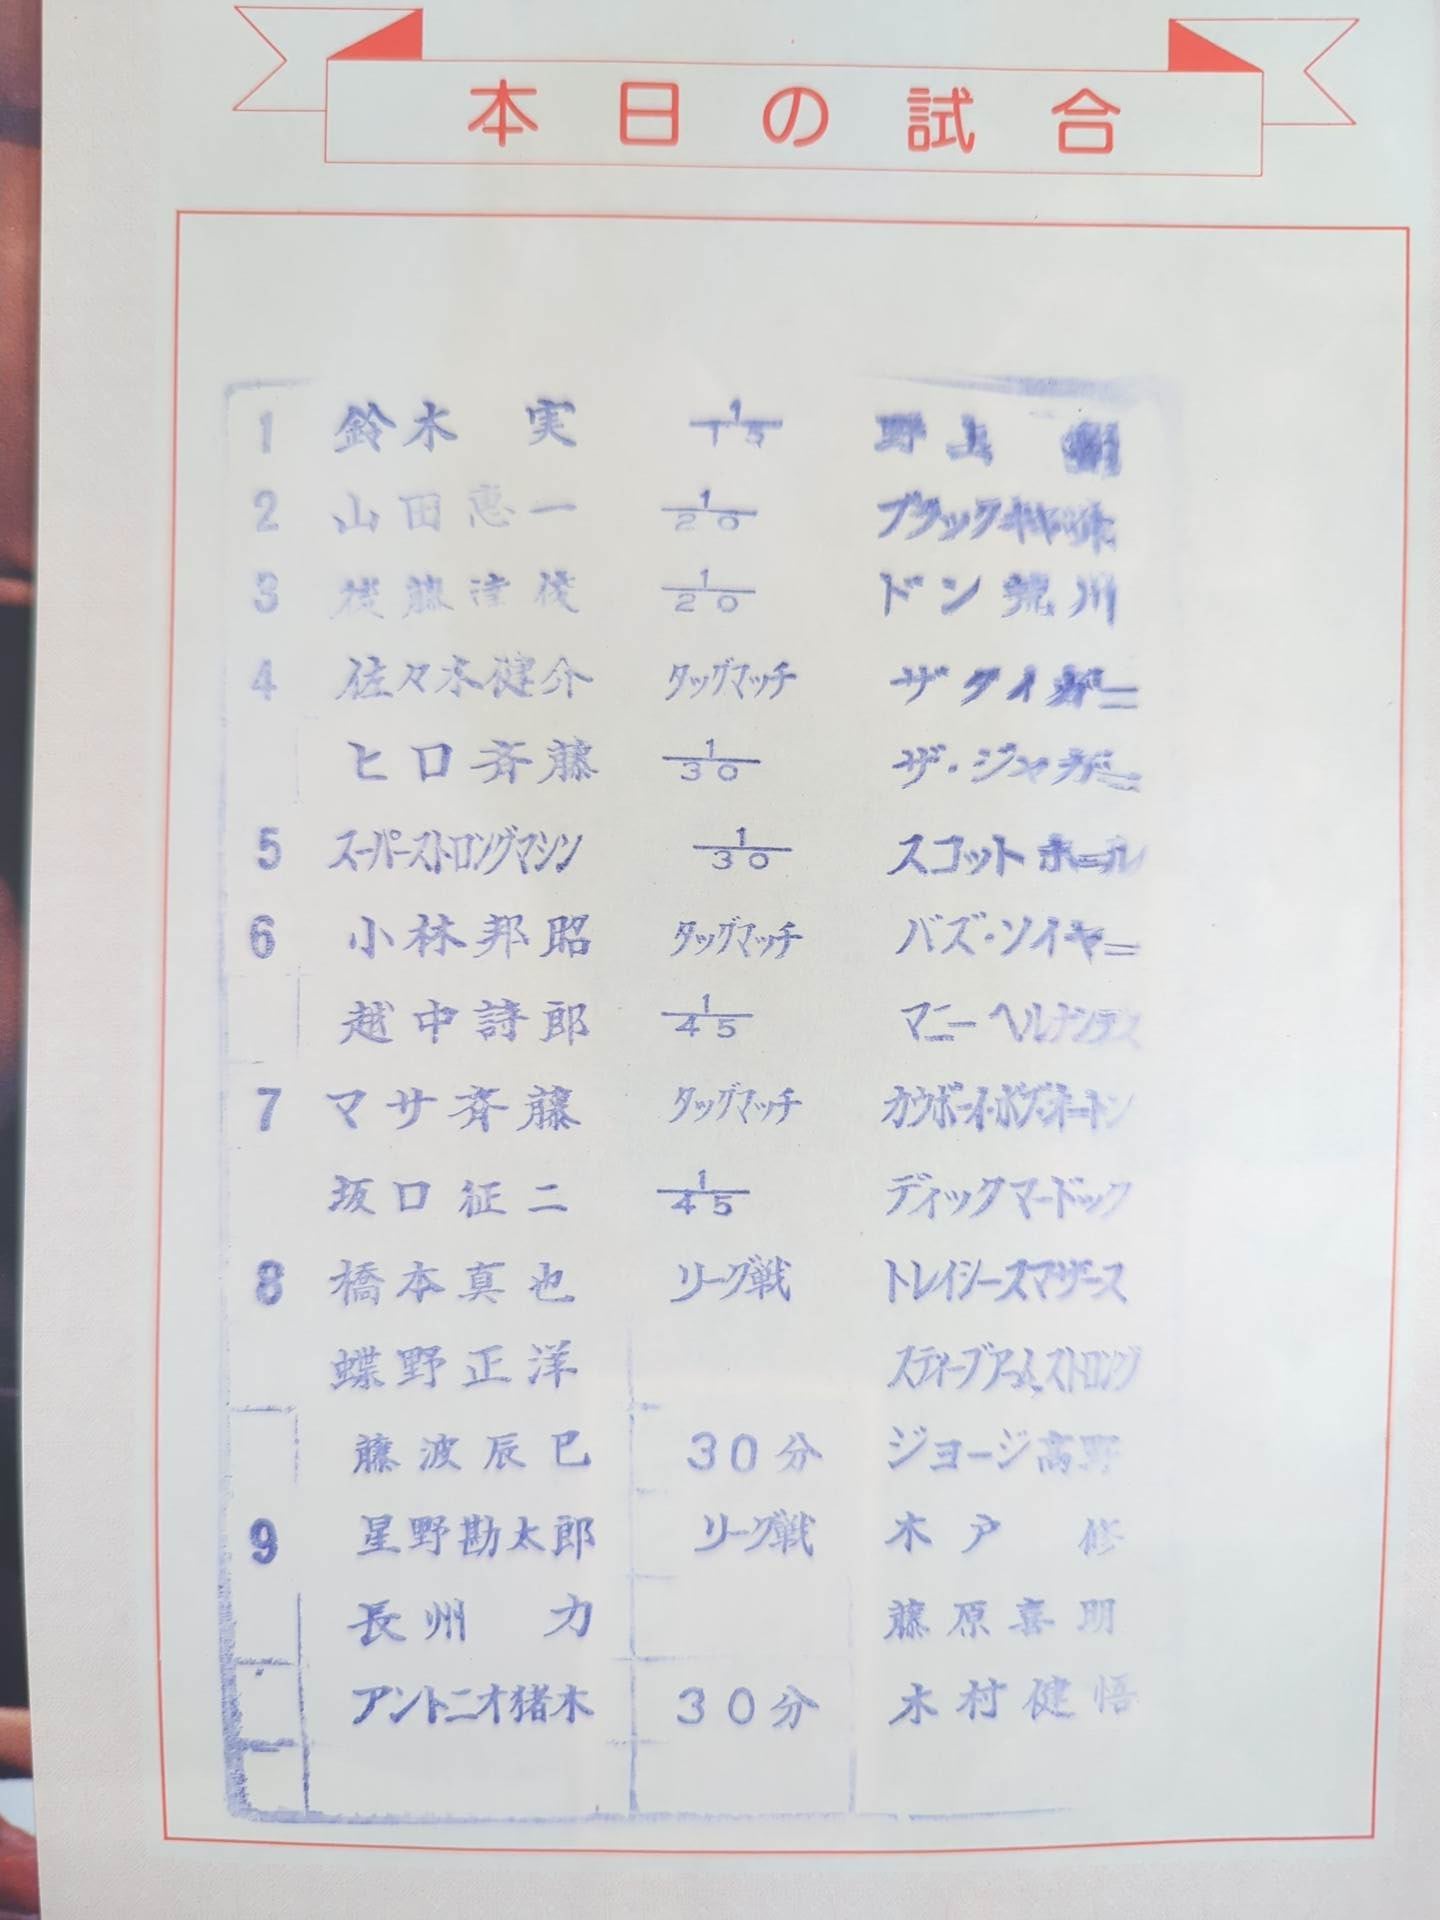 本日の試合
1 鈴木 実 1/15 野上
2 山田恵一 1/20 ブラックキャット
3 後藤達俊 1/20 ドン荒川
4 佐々木健介 タッグマッチ ザタイガー
ヒロ斉藤 1/30 ザ・ジャガー
5 スーパーストロングマシン 1/30 スコットホール
6 小林邦昭 タッグマッチ バズ・ソイヤー
越中詩郎 1/45 マニーヘルナンデス
7 マサ斉藤 タッグマッチ カウボーイ・ボブ・オートン
坂口征二 1/45 ディックマードック
8 橋本真也 リーグ戦 トレイシースマザース
蝶野正洋 スティーブアームストロング
藤波辰巳 30分 ジョージ高野
9 星野勘太郎 リーグ戦 木戸 修
長州 力 藤原喜明
アントニオ猪木 30分 木村健悟